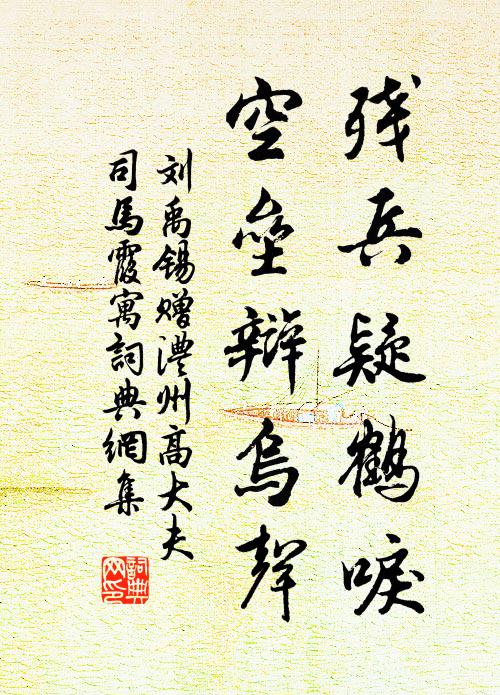 残兵疑鹤唳
空垒辩乌声
刘禹锡赠澧州高大夫
司马霞寓詞典網集
詞典网印